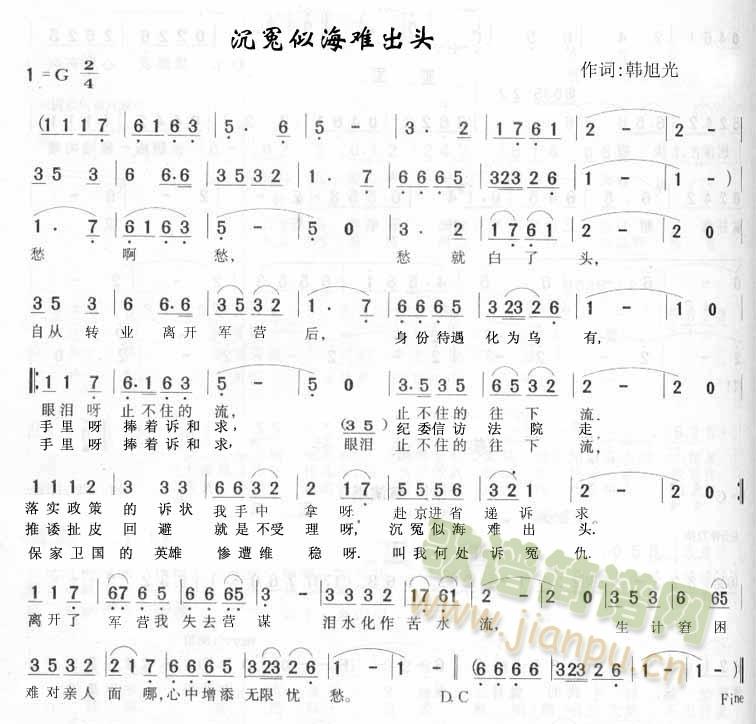 沉冤似海难出头
1=G 2/4
作词:韩旭光
(1 1 1 7 | 6 1 6 3 | 5 . 6 | 5 - | 3 . 2 | 1 7 6 1 | 2 - | 2 - |
3 5 3 | 6 6 . 6 | 3 5 3 2 | 1 . 7 | 6 6 6 5 | 32 3 2 6 | 1 - | 1 - )
1 . 7 | 6 1 6 3 | 5 - | 5 0 | 3 . 2 | 1 7 6 1 | 2 - | 2 0 |
愁 啊 愁, 愁 就 白 了 头,
3 5 3 | 6 6 . 6 | 3 5 3 2 | 1 . 7 | 6 6 6 5 | 3 23 2 6 | 1 - | 1 0
自从 转 业 离 开 军 营 后, 身份待遇 化 为 乌 有,
‖: 1 1 7 | 6 . 1 6 3 | 5 - | 5 0 | 3 . 5 3 5 | 6 5 3 2 | 2 - | 2 0 |
眼泪 呀 止 不住的 流, 止 不住的 往 下 流.
手里 呀 捧 着 诉 和 求, (3 5) 纪 委 信 访 法 院 走,
手里 呀 捧 着 诉 和 求, 眼泪 止 不住的 往 下 流,
1 1 1 2 | 7 6 5 3 | 6 6 3 2 | 2 1 7 | 5 5 5 6 | 3 2 1 | 2 - | 2 0 |
落实政策 的 诉状 我手中 拿 呀. 赴京进省 递 诉 求.
推诿扯皮 回 避 就是不受 理 呀, 沉冤似海 难 出 头.
保家卫国 的 英雄 惨遭维 稳 呀. 叫我何处 诉 冤 仇.
1 1 7 | 67 6 5 | 6 5 6 6 | 3 . | 3 3 3 2 | 17 61 | 2 - | 2 0 | 3 5 3 | 6 65 |
离开了 军营我 失去营 谋 泪水化作 苦 水 流, 生 计 窘 困
3 5 3 2 | 2 1 7 | 6 6 6 5 | 3 23 2 6 | 1 - | 1 - | (6 6 6 5 | 3 23 2 6 | 1 - | 1 - ) :‖
难 对亲人 面 哪,心中增添 无限 忧 愁. D.C Fine
歌谱简谱网
www.jianpu.cn